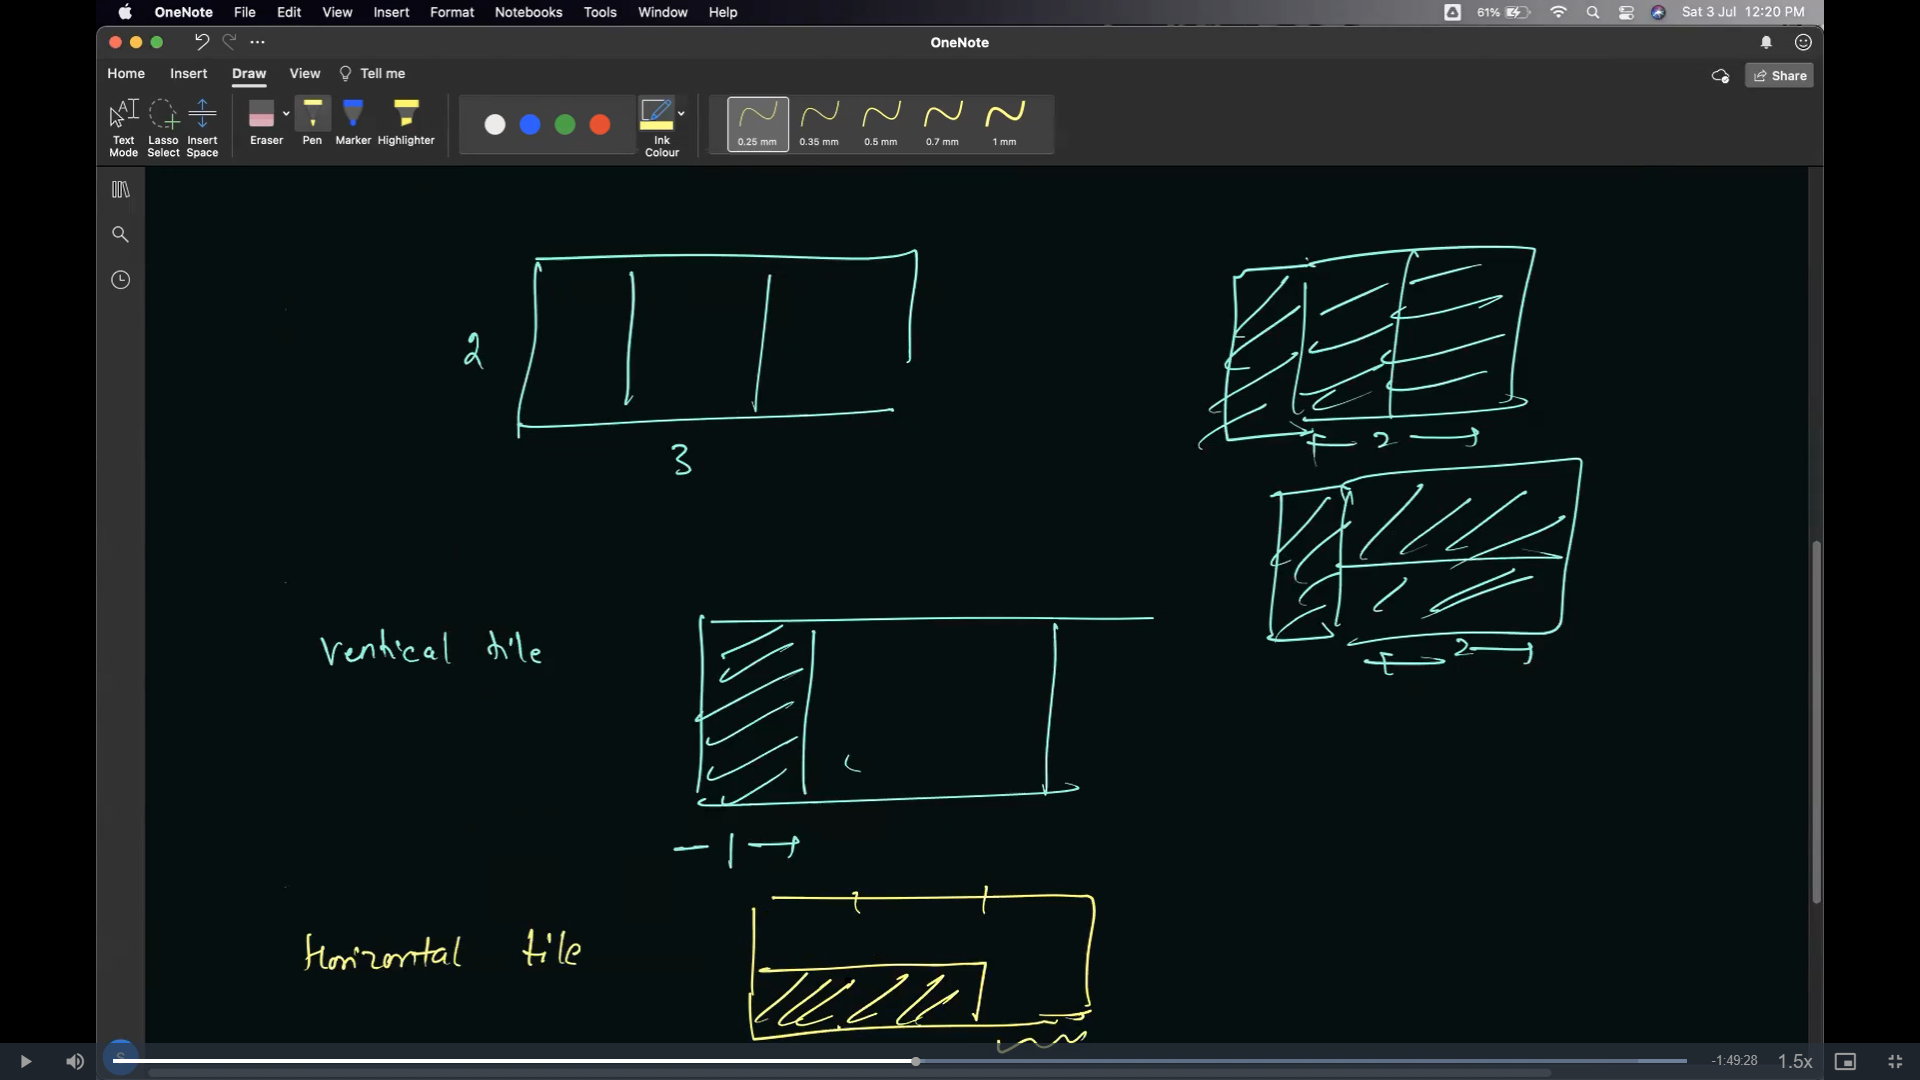 OneNote File Edit View Insert Format Notebooks Tools Window Help
61% Sat 3 Jul 12:20 PM
OneNote
Home Insert Draw View Tell me
Share
Text Mode
Lasso Select
Insert Space
Eraser
Pen
Marker
Highlighter
Ink Colour
0.25 mm
0.35 mm
0.5 mm
0.7 mm
1 mm
2
3
2
2
Vertical tile
1
Horizontal tile
S
-1:49:28
1.5x